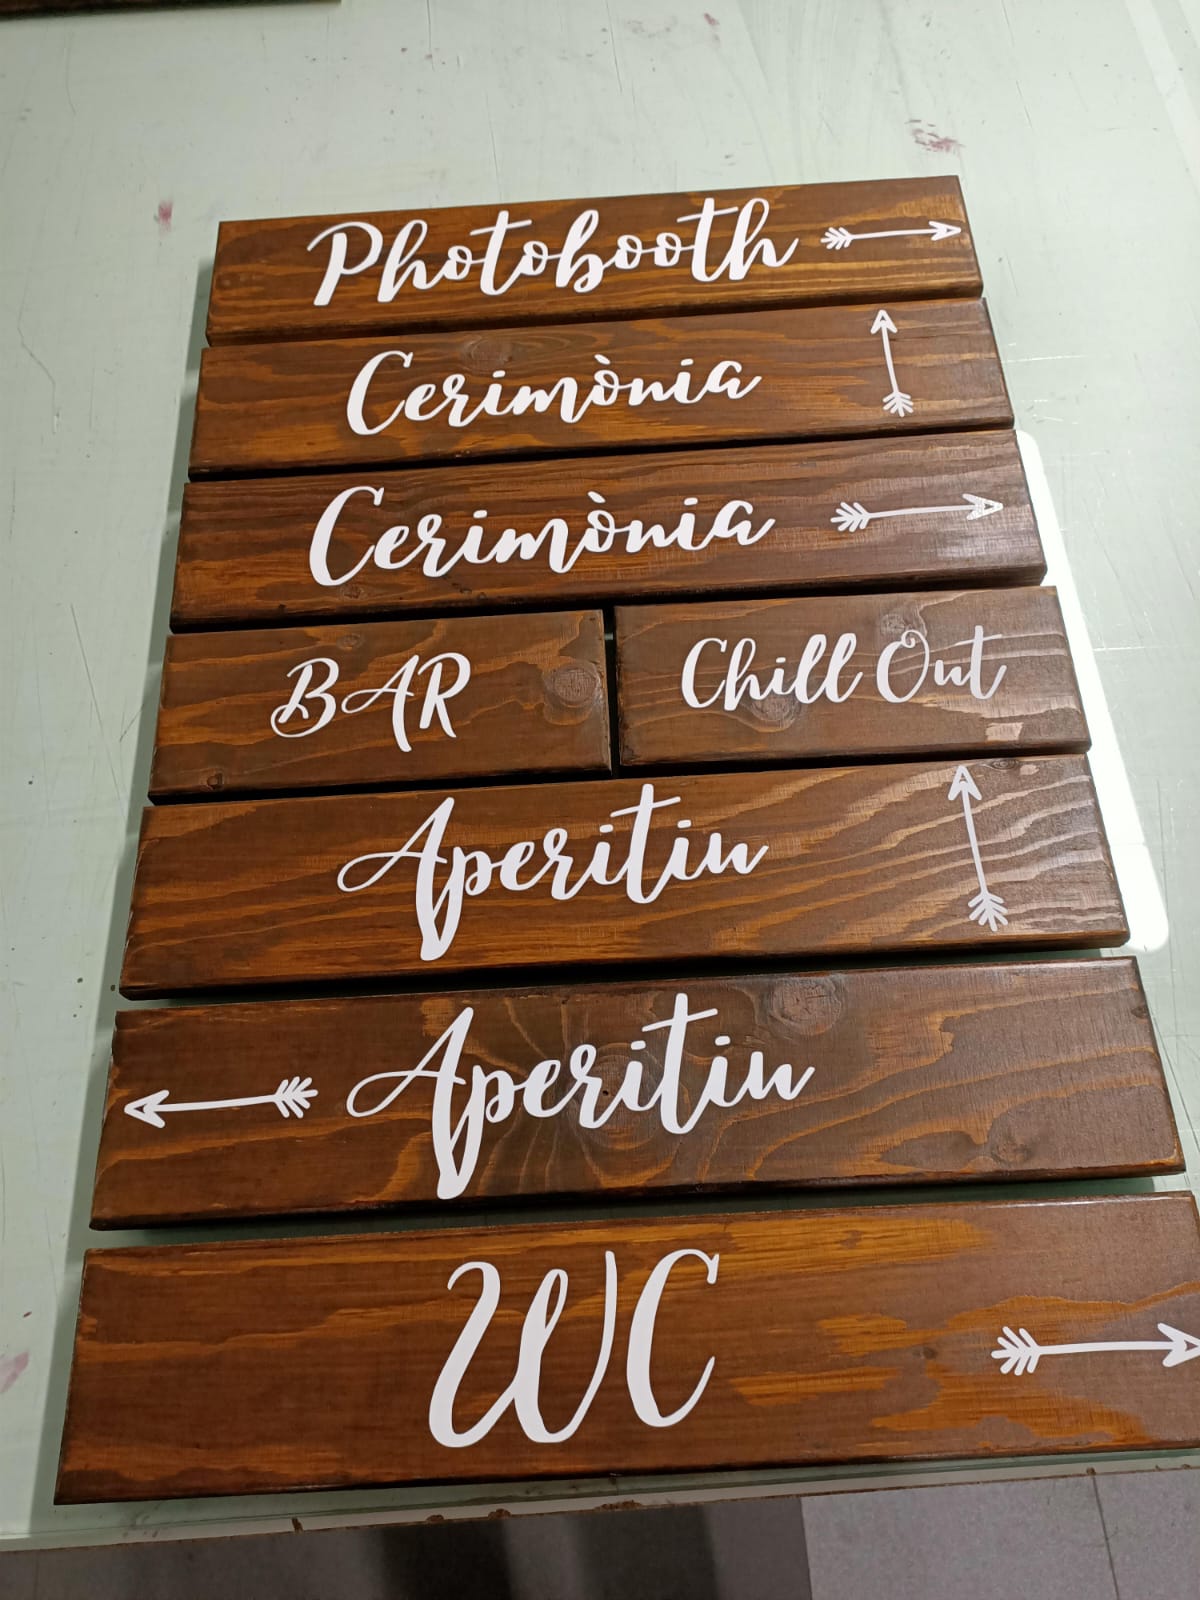 Photobooth
Cerimònia
Cerimònia
BAR
Chill Out
Aperitiu
Aperitiu
WC